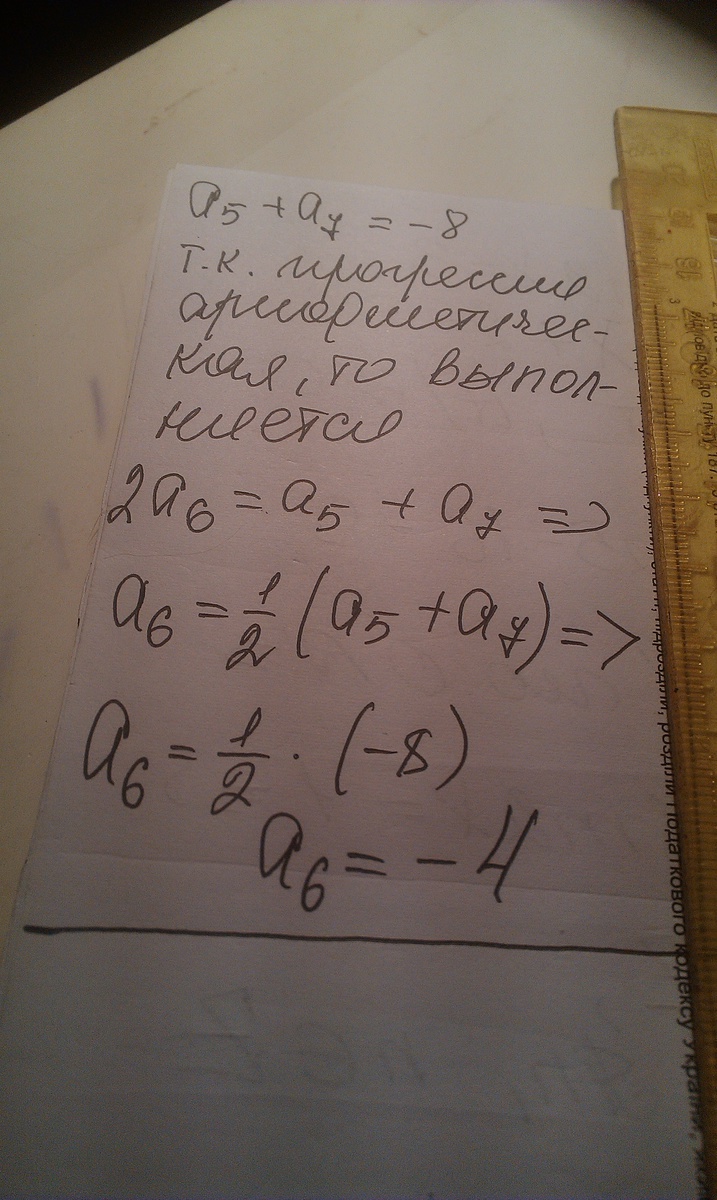 a₅ + a₇ = -8
т.к. прогрессия
арифметичес-
кая, то выпол-
няется
2a₆ = a₅ + a₇ =>
a₆ = 1/2 (a₅ + a₇) =>
a₆ = 1/2 · (-8)
a₆ = -4
розділи Податкового кодексу України,